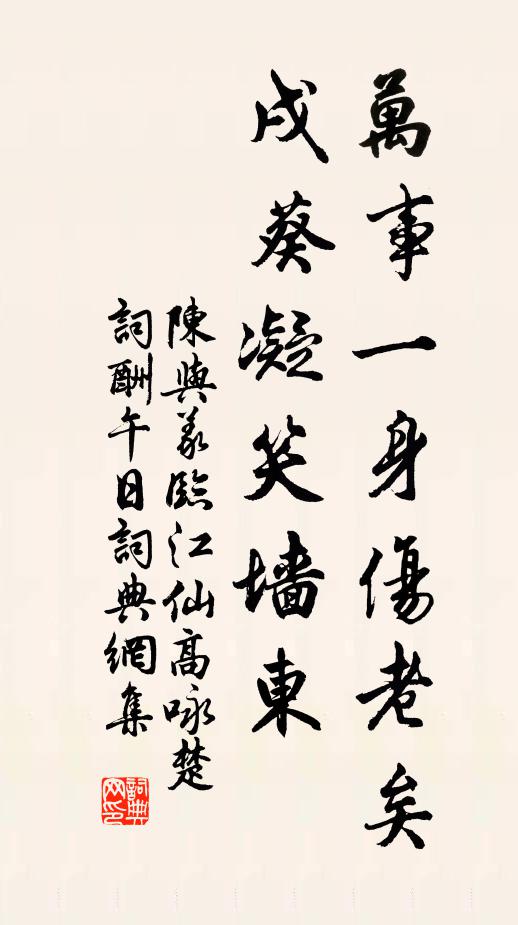 萬事一身傷老矣
戍葵凝笑墻東
陳與義臨江仙高咏楚
詞酬午日詞典網集
詞典网印